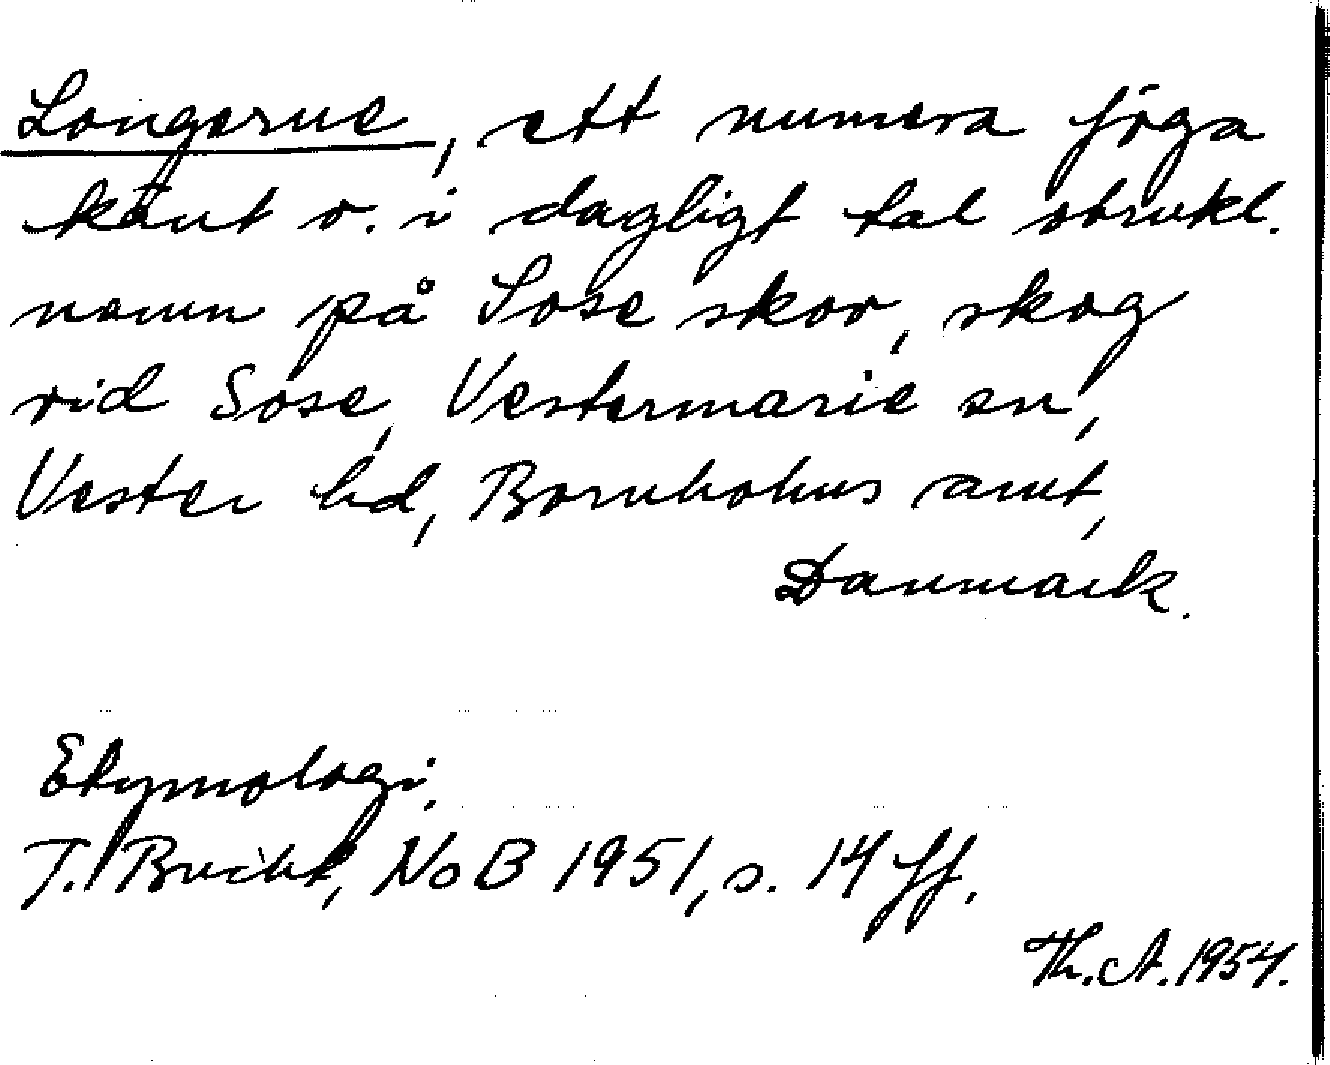 Longerne, ett numera föga
känt o. i dagligt tal obrukl.
namn på Sose skov, skog
vid Sose, Vestermarie sn,
Vester hd, Bornholms amt,
Danmark.
Etymologi.
T. Bucht, NoB 1951, s. 14 ff.
Th. A. 1954.